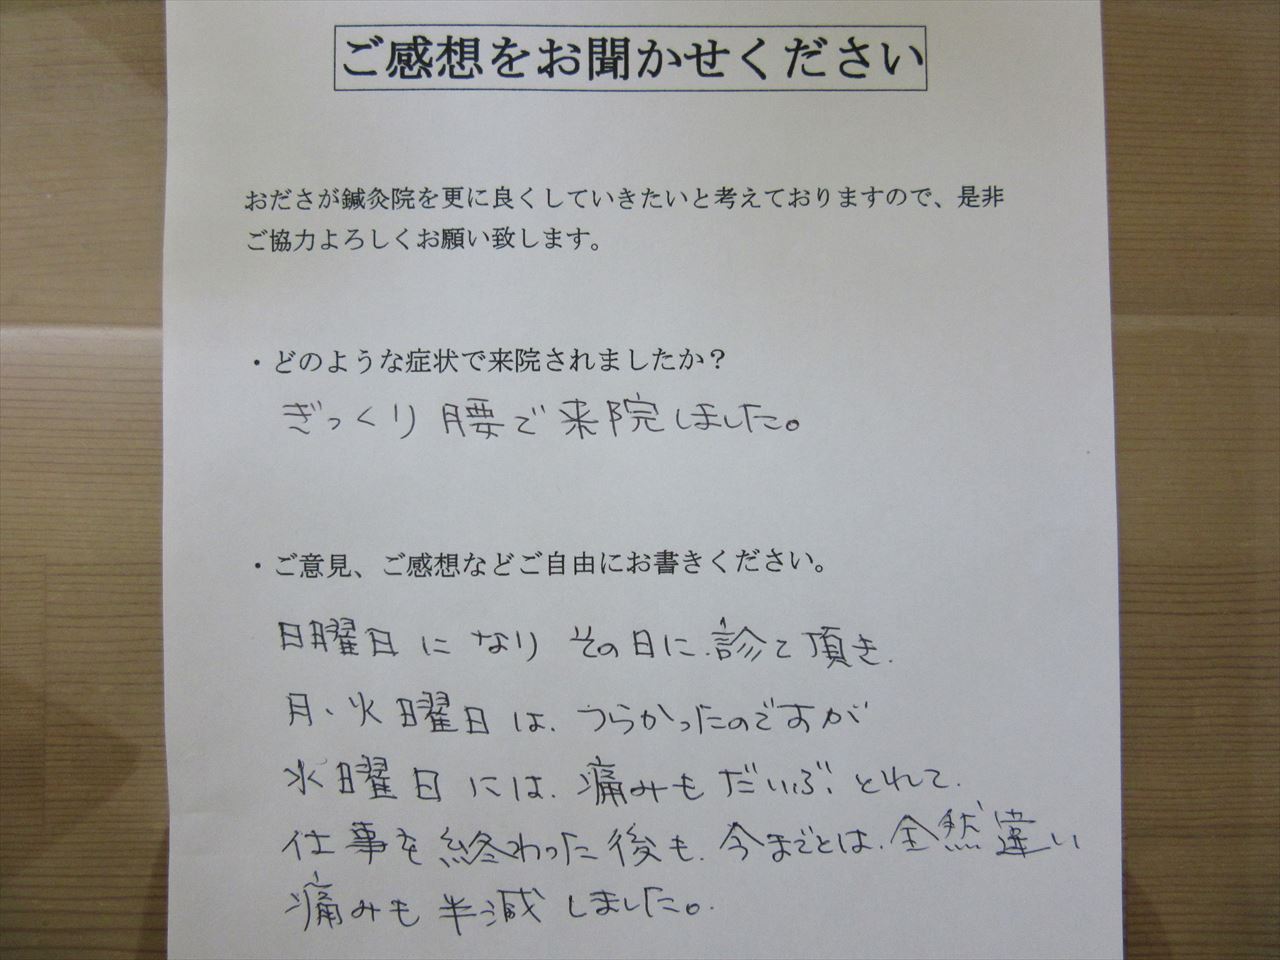 ご感想をお聞かせください
おださが鍼灸院を更に良くしていきたいと考えておりますので、是非
ご協力よろしくお願い致します。
・どのような症状で来院されましたか？
ぎっくり腰で来院しました。
・ご意見、ご感想などご自由にお書きください。
日曜日になりその日に、診て頂き、
月、火曜日は、つらかったのですが
水曜日には、痛みもだいぶとれて、
仕事を終わった後も、今までとは、全然違い
痛みも半減しました。